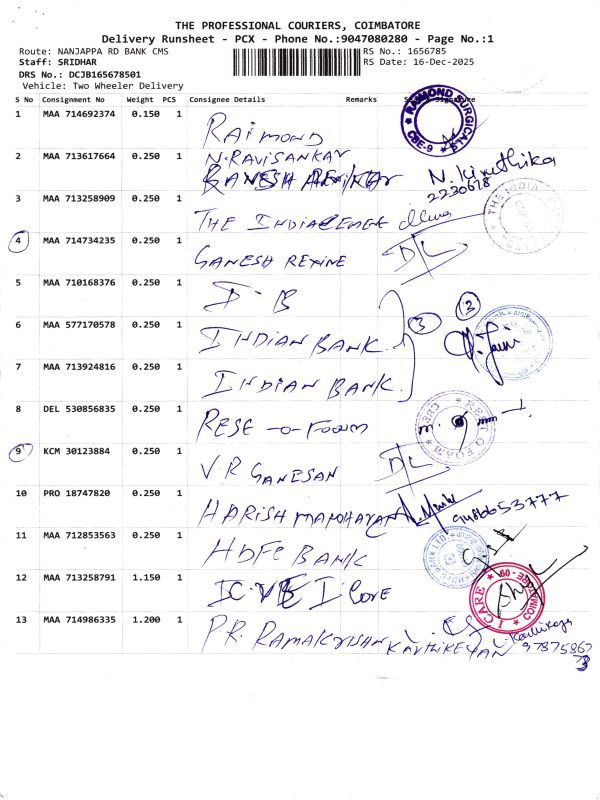 THE PROFESSIONAL COURIERS, COIMBATORE
Delivery Runsheet - PCX - Phone No.:9047080280 - Page No.:1
Route: NANJAPPA RD BANK CMS RS No.: 1656785
Staff: SRIDHAR RS Date: 16-Dec-2025
DRS No.: DCJB165678501
Vehicle: Two Wheeler Delivery
S No Consignment No Weight PCS Consignee Details Remarks Signature
1 MAA 714692374 0.150 1 RAIMOND RAIMOND SURGICAL CBE-9
2 MAA 713617664 0.250 1 N.RAVISANKAR N. Kiruthika
2230618
3 MAA 713258909 0.250 1 THE INDIA CEMENT THE INDIA
4 MAA 714734235 0.250 1 GANESH REXINE D/L
5 MAA 710168376 0.250 1 D-B
6 MAA 577170578 0.250 1 INDIAN BANK 3 3
7 MAA 713924816 0.250 1 INDIAN BANK
8 DEL 530856835 0.250 1 RESE-O-FOAM
9 KCM 30123884 0.250 1 V.R GANESAN D/L
10 PRO 18747820 0.250 1 HARISH MANOHARAN 9486653777
11 MAA 712853563 0.250 1 HDFC BANK
12 MAA 713258791 1.150 1 I Care I CARE
13 MAA 714986335 1.200 1 P.R. RAMAKRISHAN KARTHIKEYAN